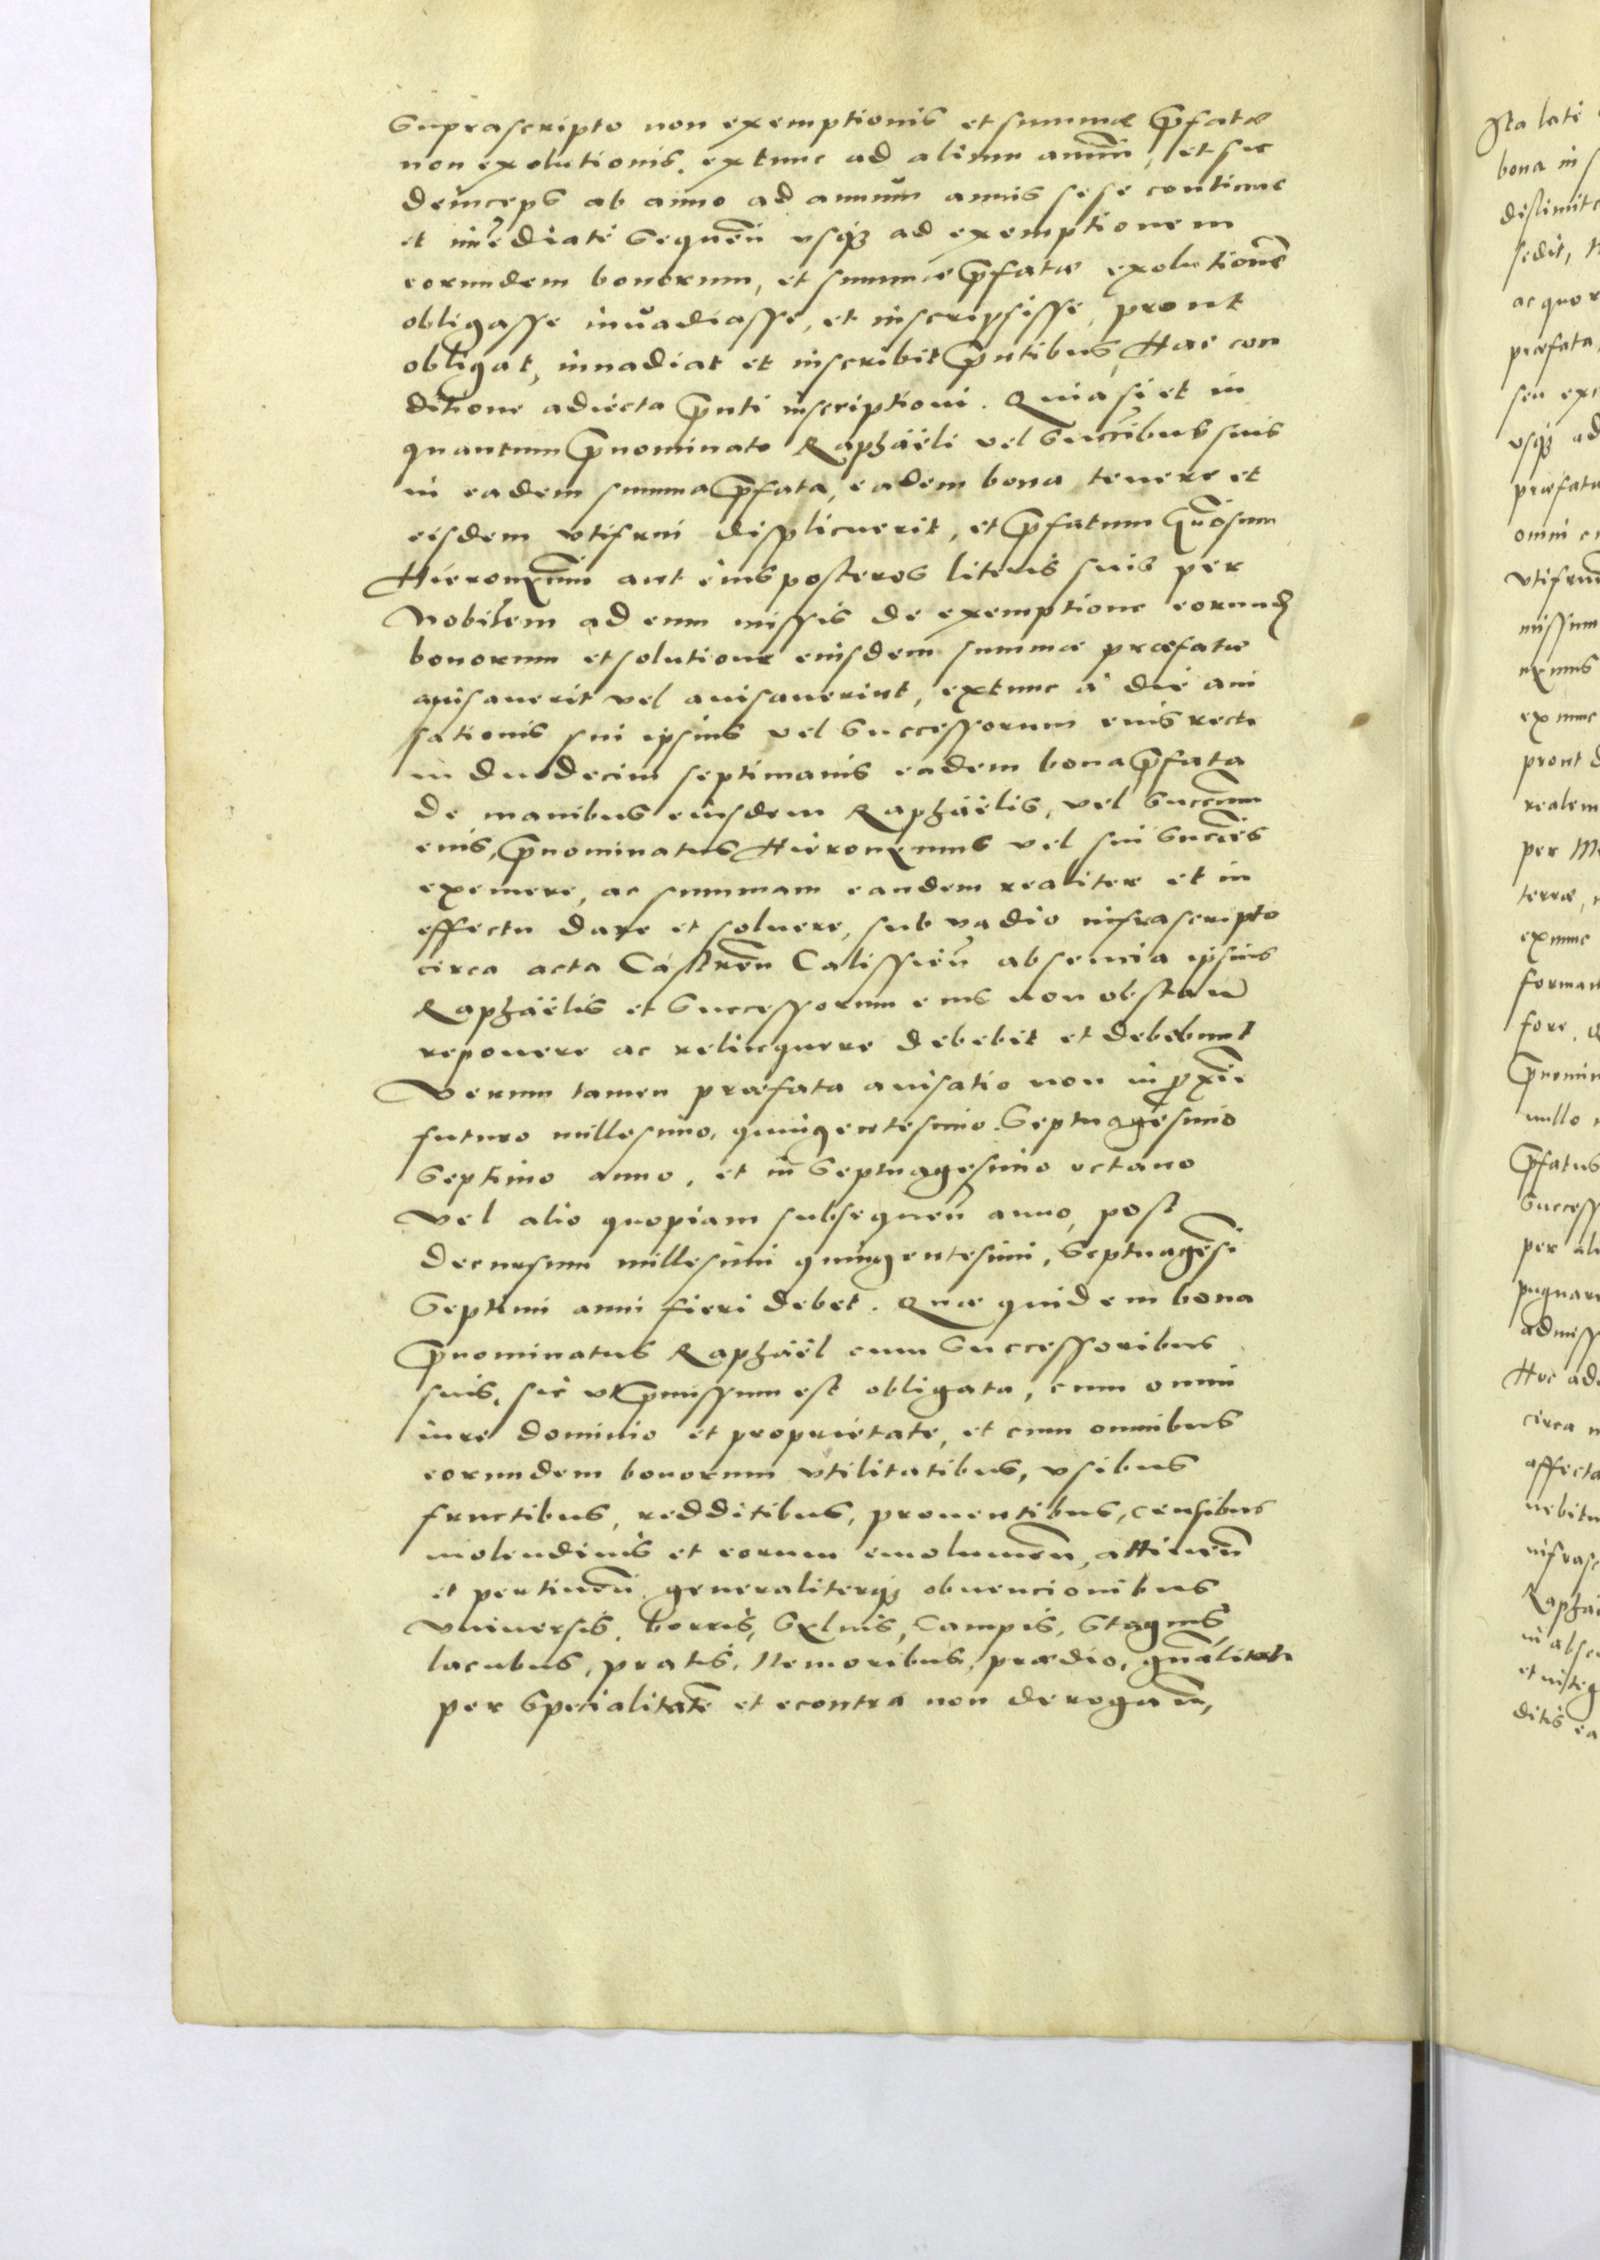 Suprascripto non exemptionis et summæ p̃fatæ
non exolutionis. extunc ad alium annũ, et sic
deinceps ab anno ad annum annis sese continue
et im̃ediate sequeñ usq3 ad exemptionem
eorundem bonorum, et summæ p̃fatæ exolutionẽ
obligasse inuadiasse, et inscripsisse, prout
obligat, inuadiat et inscribit p̃ntibus, Hac con
ditione adiecta p̃nti inscriptioni. Quia si et in
quantum p̃nominato Raphaëli vel Succ̃ribus suis
in eadem summa p̃fata, eadem bona tenere et
eisdem vtifrui displicuerit, et p̃fatum g̃nosum
Hieronymũ aut eius posteros literis suis per
Nobilem ad eum missis de exemptione eorund̃
bonorum et solutione eiusdem summæ præfatæ
auisauerit vel auisauerint, extunc à die aui
sationis sui ipsius vel Successorum eius recte
in duodecim septimanis eadem bona p̃fata
de manibus eiusdem Raphaëlis, vel Succ̃rum
eius, p̃nominatus Hieronymus vel sui Succ̃res
exemere, ac summam eandem realiter et in
effectu dare et soluere, sub vadio infrascripto
circa acta Castreñ Calissieñ absentia ipsius
Raphaëlis et Successorum eius non obstañ
reponere ac relinquere debebit et debebunt
Verum tamen præfata auisatio non in proxĩe
futuro millesimo, quingentesimo. Septuagesimo
Septimo anno, et in Septuagesimo octauo
Vel alio quopiam subsequeñ anno, post
decursum millesimi quingentesimi, Septuagẽsi
Septimi anni fieri debet. Quæ quidem bona
p̃nominatus Raphaël cum Successoribus
suis, sic vt p̃missum est obligata, cum omni
iure dominio et proprietate, et cum omnibus
eorundem bonorum vtilitatibus, vsibus
fructibus, redditibus, prouentibus, censibus
molendinis et eorum emolumeñ, attineñ
et pertineñ generaliterq3 obuencionibus
Vniuersis. borris, Syluis, Campis, Stagnis,
lacubus, pratis, Nemoribus, prædio, gñalitate
per Specialitatẽ et econtra non derogañ,
Ita late
bona in
sedit,
ac quor
præfata,
seu
vsq3 ad
omni
missum
ex nunc
prout
realem
per
terræ,
exnunc
fore.
nullo
p̃fatus
Success
per ali
Hoc
circa
affecta
infrasc
Raphaë
in
ditis ea